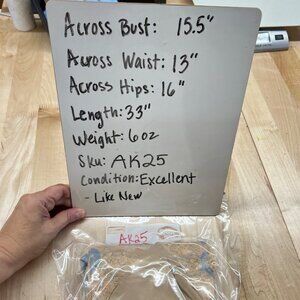 Across Bust: 15.5"
Across Waist: 13"
Across Hips: 16"
Length: 33"
Weight: 6 oz
Sku: AK25
Condition: Excellent
- Like New
AK25